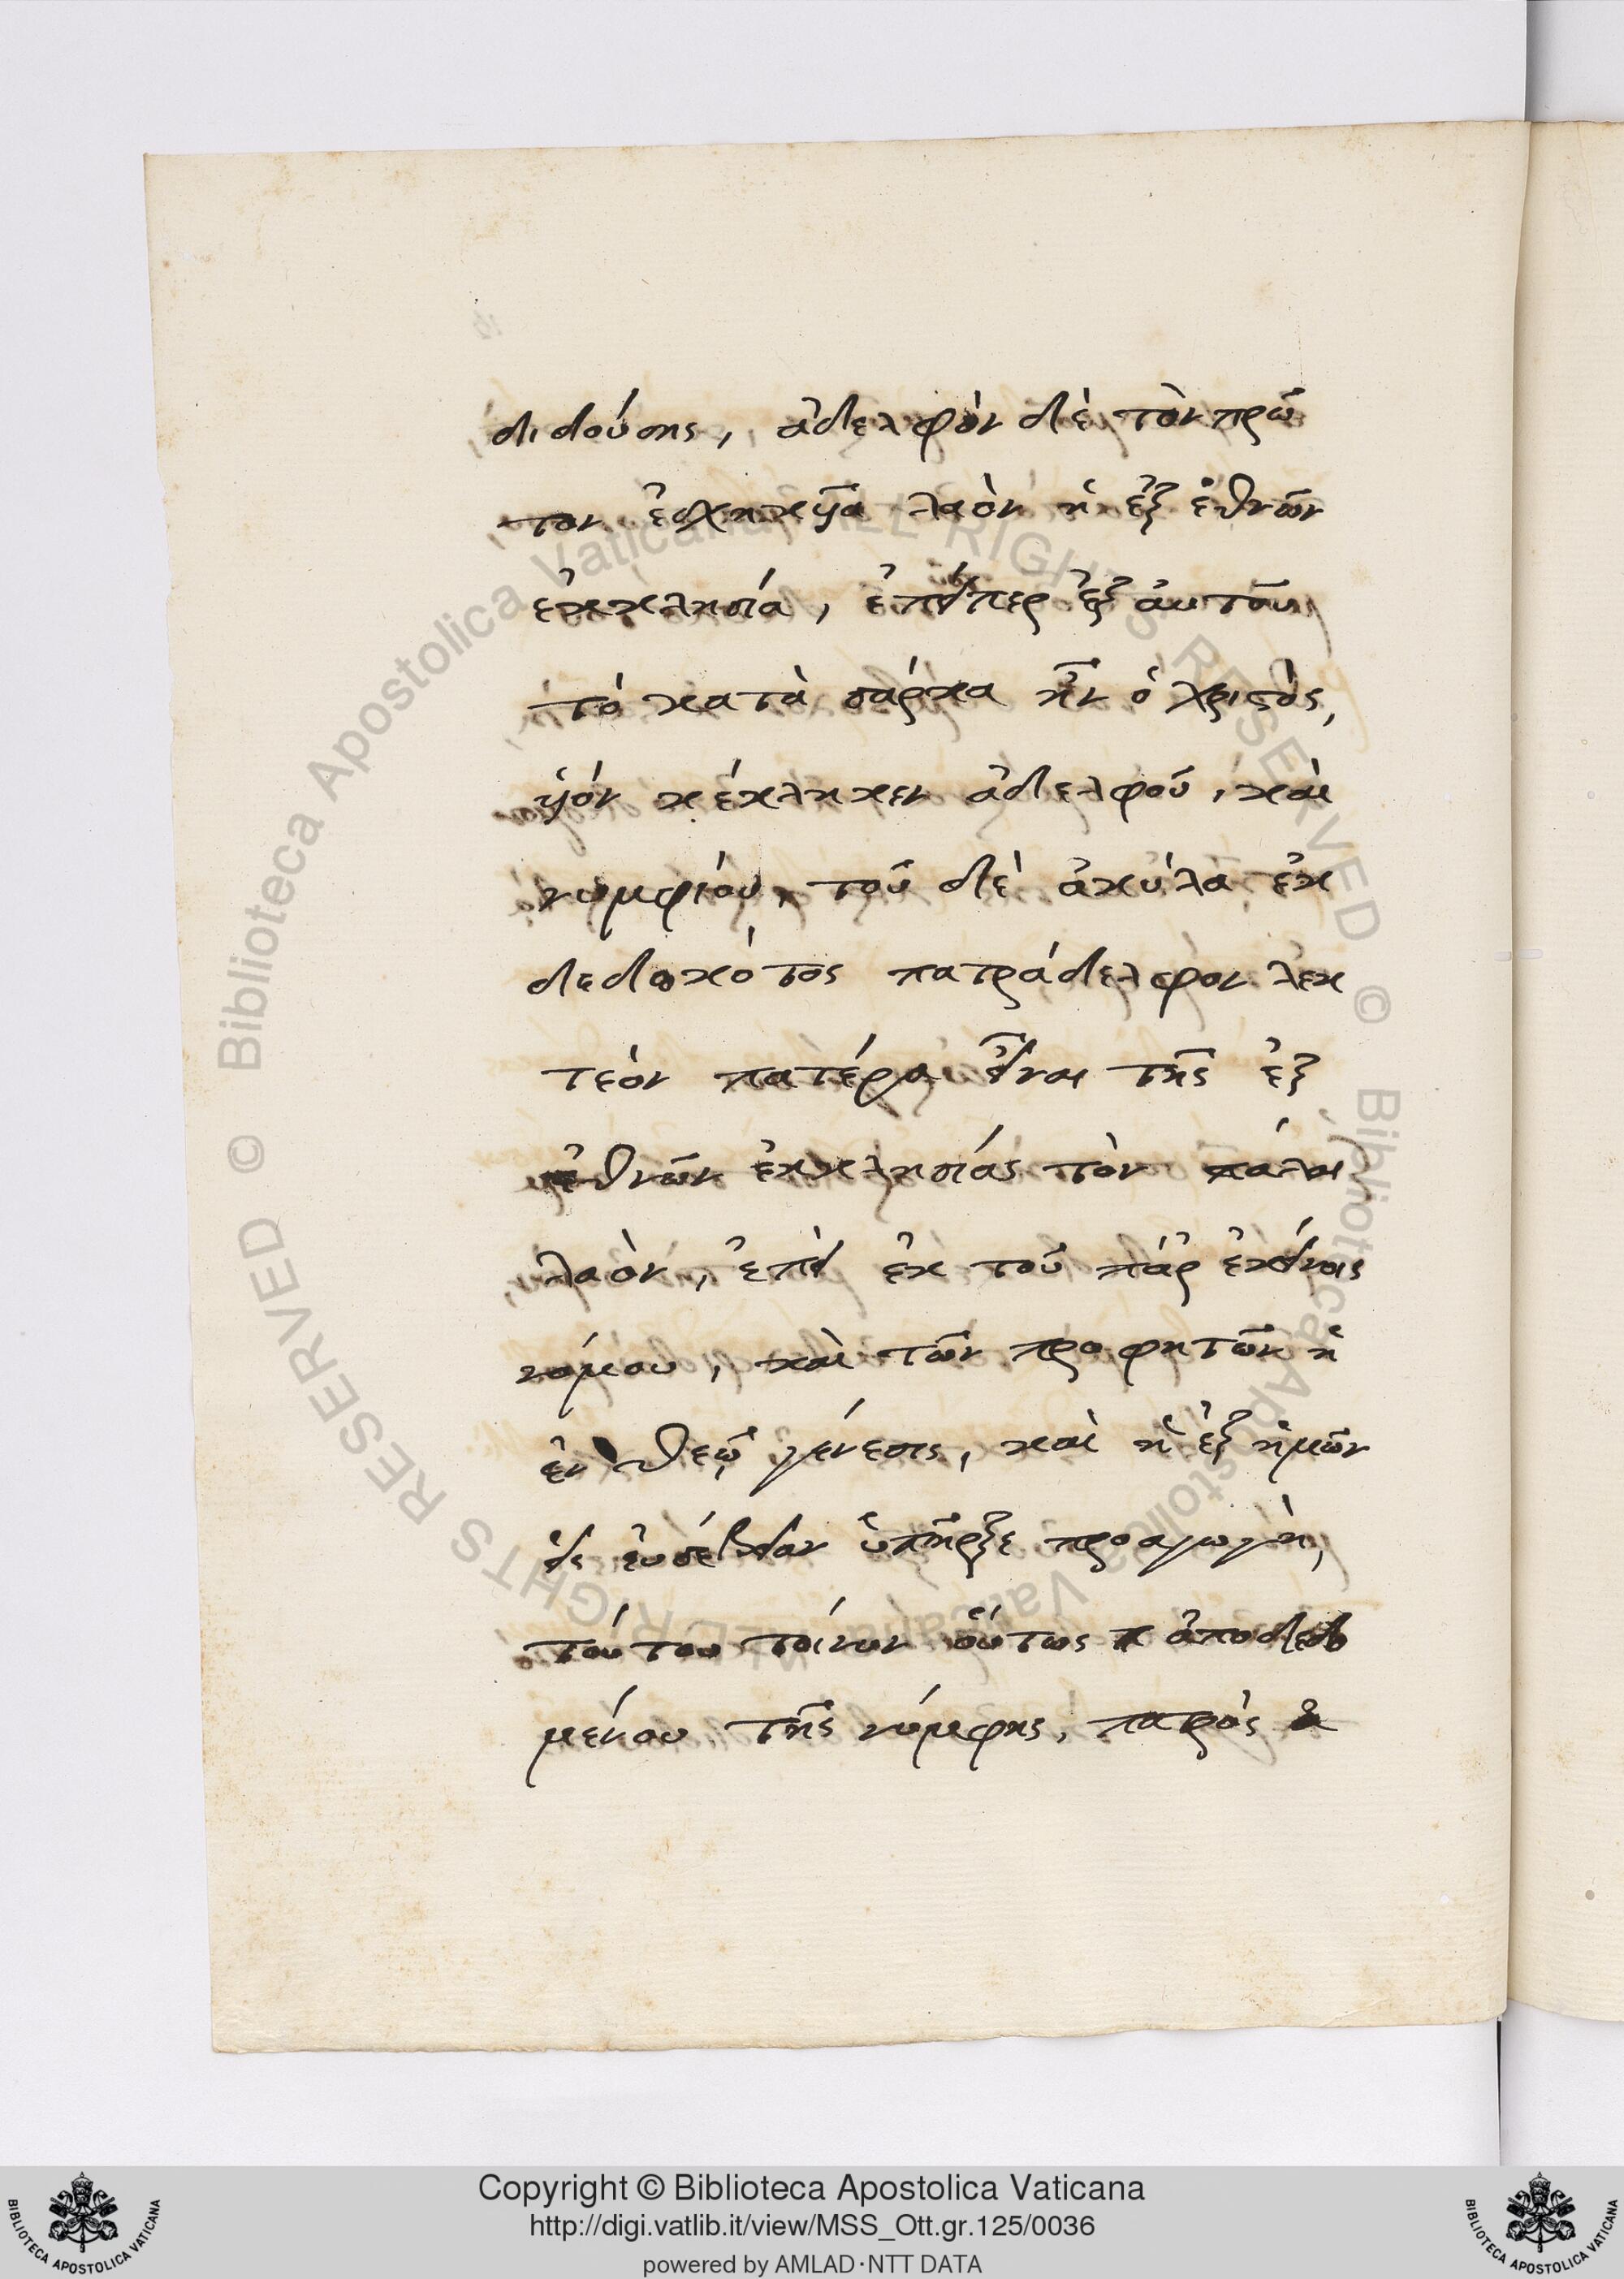 διδούσης, ἀδελφὸν δὲ τὸν πρῶ
τον ἐσχηκυῖα λαὸν ἡ ἐξ ἐθνῶν
ἐκκλησία, ἐπείπερ ἐξ ἀυτοῦ
τὸ κατὰ σάρκα ἦν ὁ χριστὸς,
ὑὸν κέκληκεν ἀδελφοῦ, καὶ
νυμφίου, τοῦ δὲ ἀκύλα ἐκ
δεδωκότος πατράδελφον λεκ
τεὸν πατέρα εἶναι τῆς ἐξ
ἐθνῶν ἐκκλησίας τὸν πάλαι
λαὸν, ἐπεὶ ἐκ τοῦ πάρ ἐκείνοις
νόμου, καὶ τῶν προφητῶν ἡ
ἐν θεῷ γένεσις, καὶ ἡ ἐξ ἡμῶν
εἰς ἐυσέβειαν ὑπῆρξε προαγωγὴ,
τούτου τοίνυν οὕτως ἀποδεδο
μένου τῆς νύμφης, πατρὸς
Copyright © Biblioteca Apostolica Vaticana
http://digi.vatlib.it/view/MSS_Ott.gr.125/0036
powered by AMLAD·NTT DATA
BIBLIOTECA APOSTOLICA VATICANA
BIBLIOTECA APOSTOLICA VATICANA
© Biblioteca Apostolica Vaticana ALL RIGHTS RESERVED
© Biblioteca Apostolica Vaticana ALL RIGHTS RESERVED